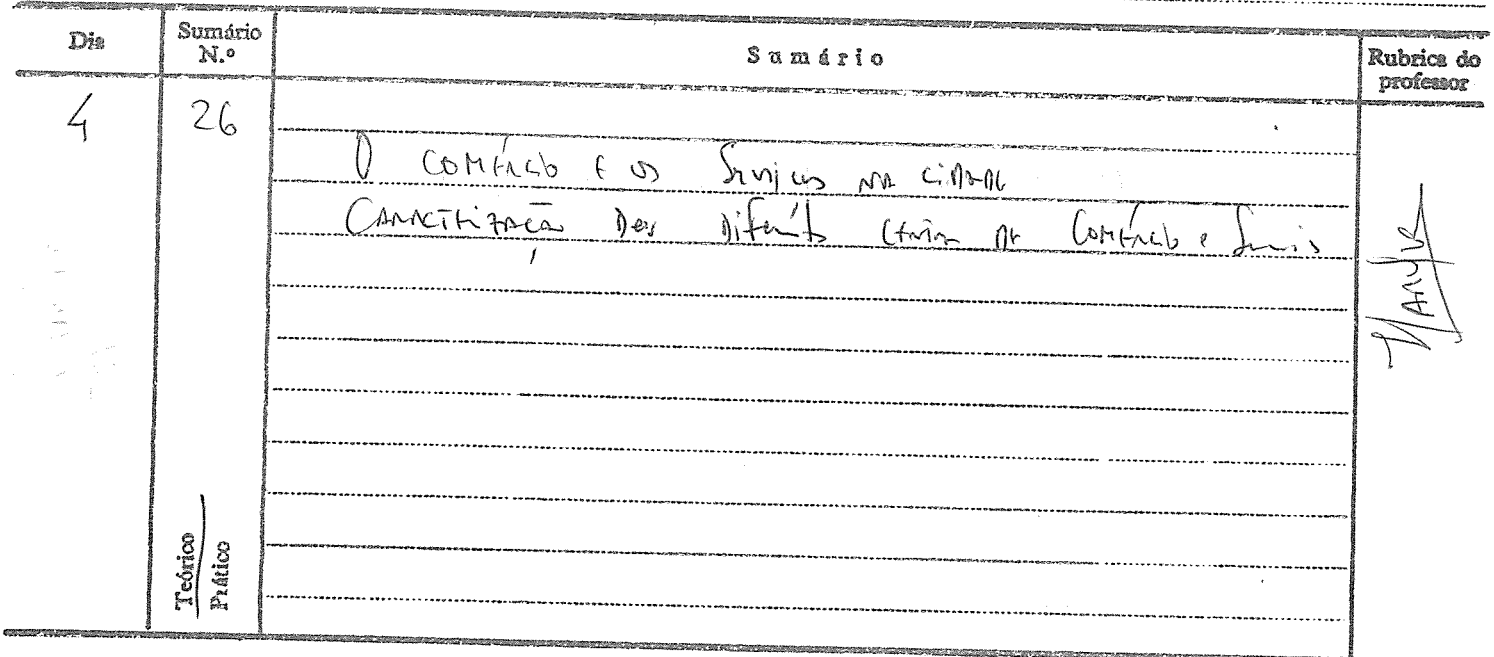 Dia Sumário N.º Sumário Rubrica do professor
4 26
O Comércio e os Serviços na cidade
Caracterização dos diferentes centros de Comércio e Serviços
Teórico
Prático